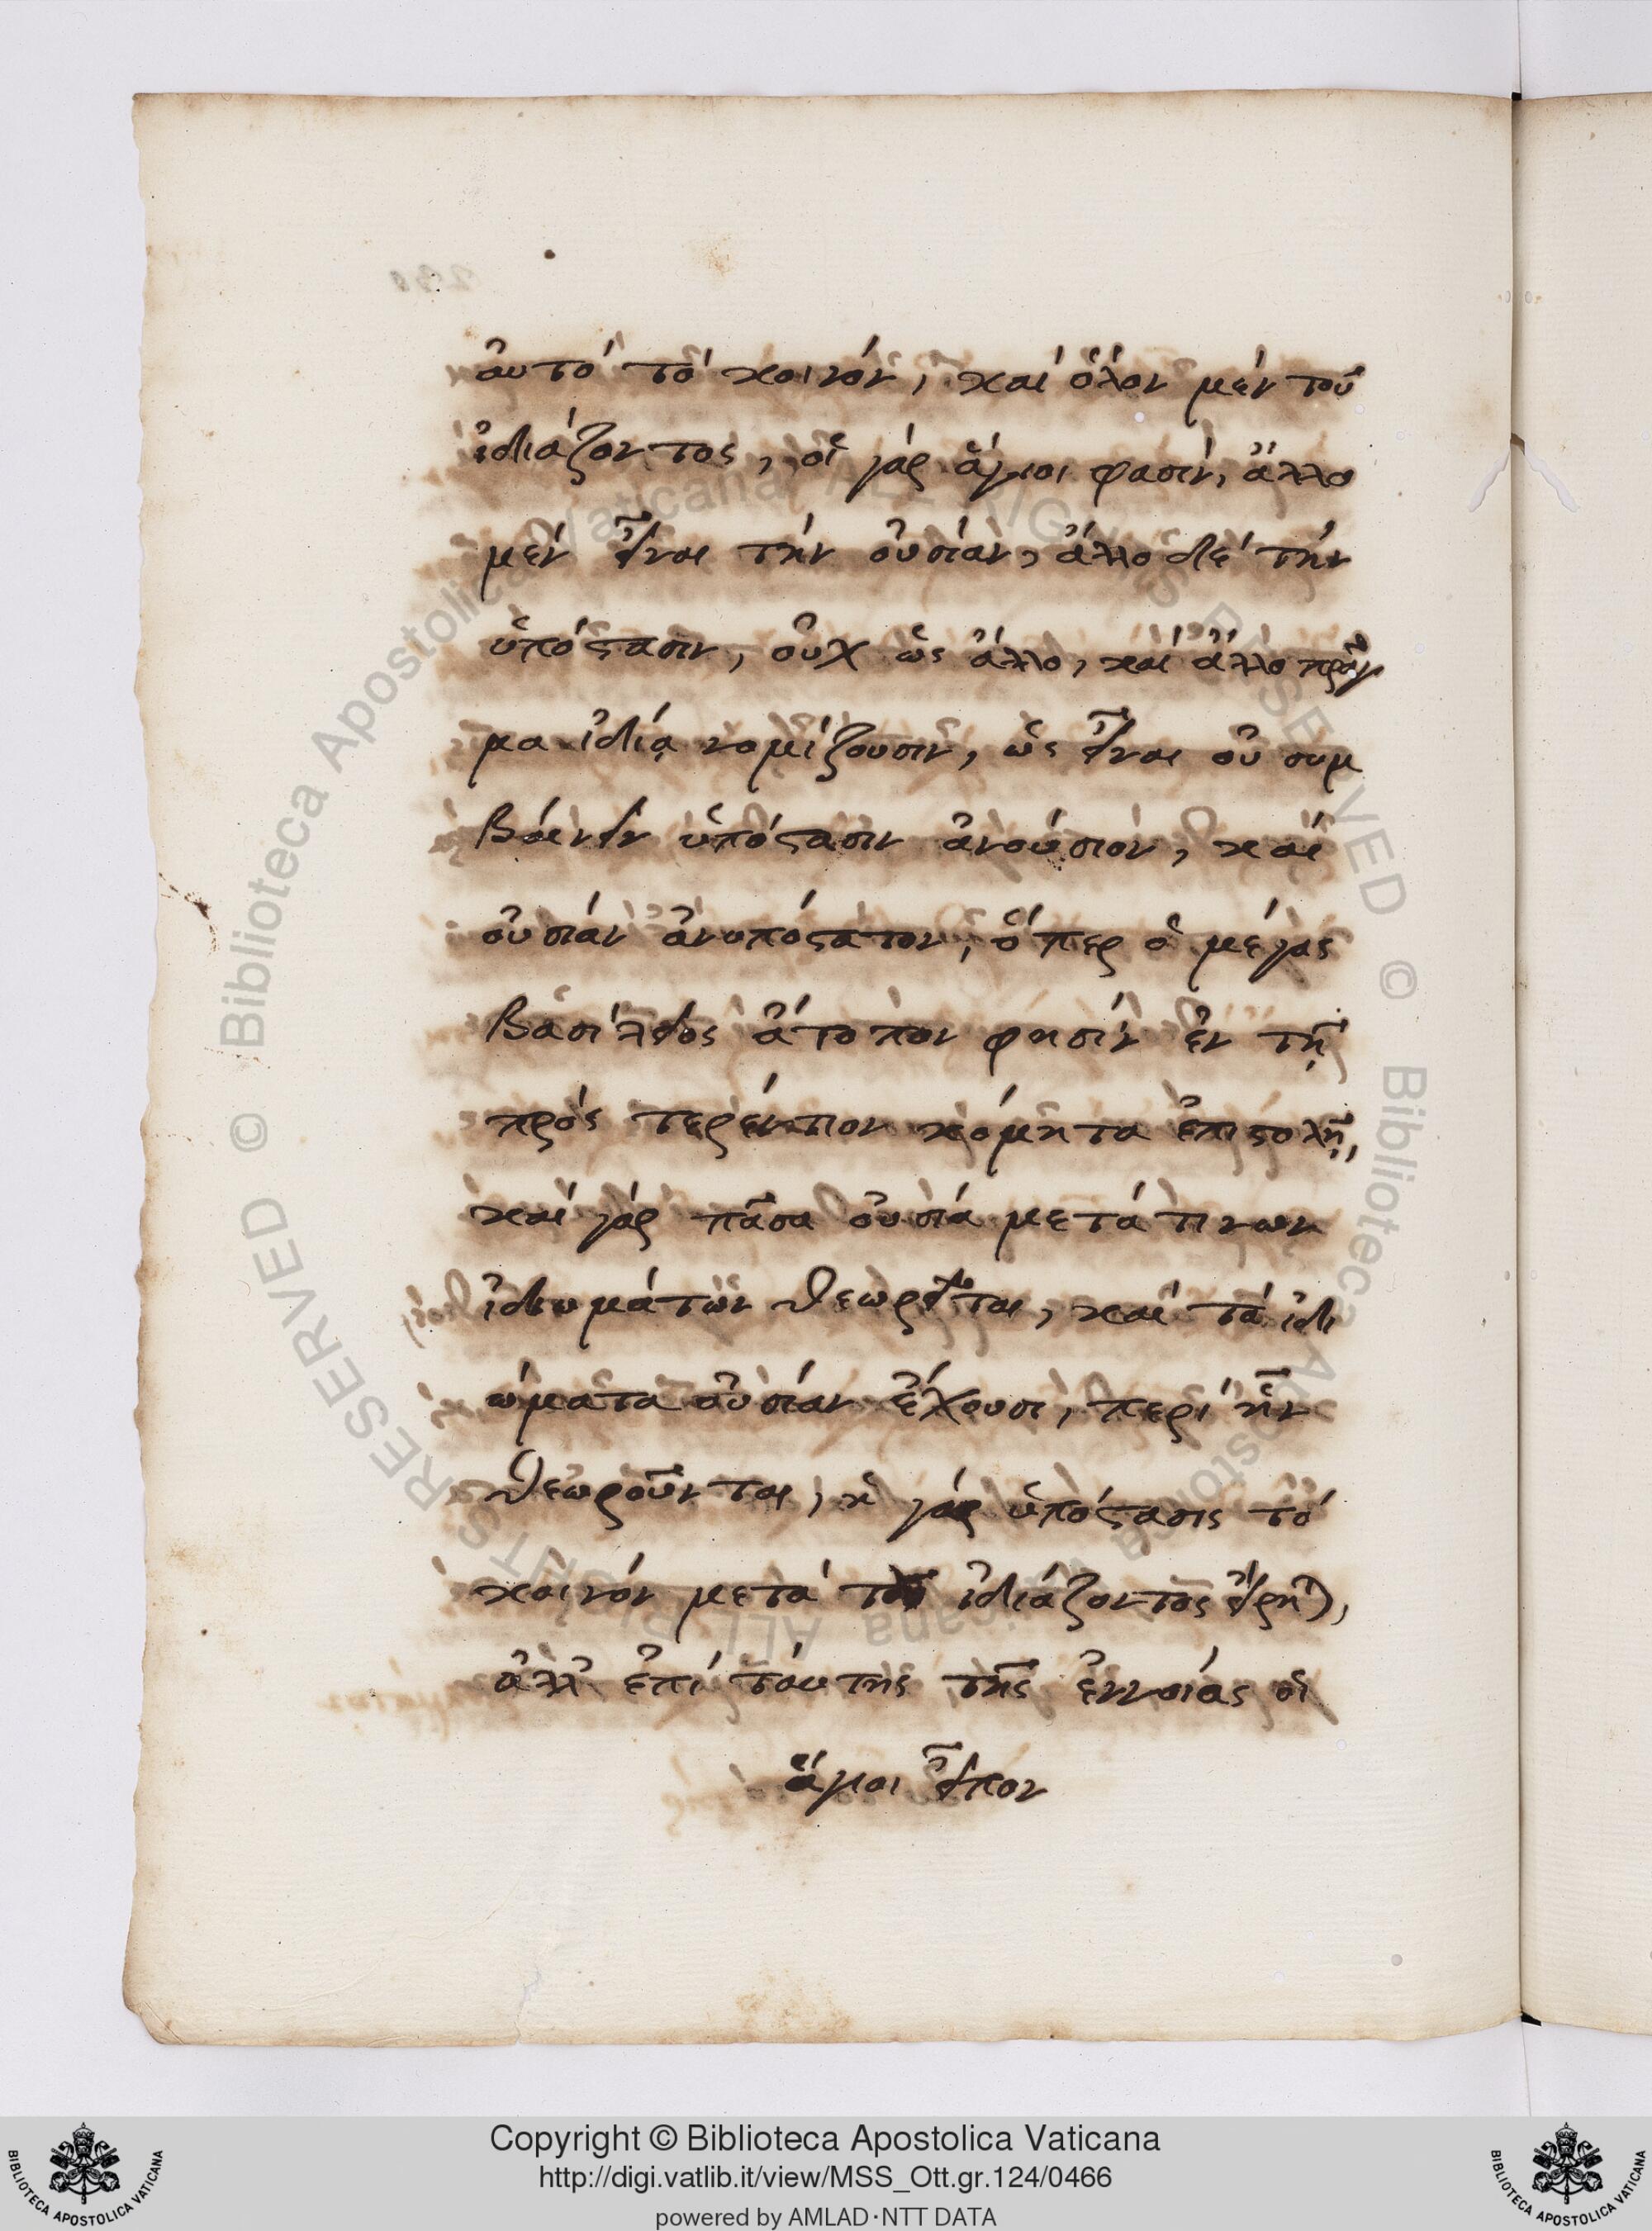 αὐτὸ τὸ κοινόν, καὶ ὅλον μὲν τοῦ
ἰδιάζοντος, οἱ γὰρ ἅγιοι φασὶν, ἄλλο
μὲν εἶναι τὴν οὐσίαν, ἄλλο δὲ τὴν
ὑπόστασιν, οὐχ ὡς ἄλλο, καὶ ἄλλο πρᾶγ
μα ἰδίᾳ νομίζουσιν, ὡς εἶναι οὐ συμ
βαίνειν ὑπόστασιν ἀνούσιον, καὶ
οὐσίαν ἀνυπόστατον, ὅπερ ὁ μέγας
βασίλειος ἄτοπον φησὶν ἐν τῇ
πρὸς τερέντιον κόμητα ἐπιστολῇ,
καὶ γὰρ πᾶσα οὐσία μετά τινων
ἰδιωμάτων θεωρεῖται, καὶ τὰ ἰδι
ώματα οὐσίαν ἔχουσι, περὶ ἣν
θεωροῦνται, ἡ γὰρ ὑπόστασις τὸ
κοινὸν μετὰ τοῦ ἰδιάζοντος εἴρη),
ἀλλ' ἐπὶ ταύτης τῆς ἐννοίας οἱ
ἅγιοι εἶπον
Copyright © Biblioteca Apostolica Vaticana
http://digi.vatlib.it/view/MSS_Ott.gr.124/0466
powered by AMLAD·NTT DATA
BIBLIOTECA APOSTOLICA VATICANA
BIBLIOTECA APOSTOLICA VATICANA
© Biblioteca Apostolica Vaticana ALL RIGHTS RESERVED
© Biblioteca Apostolica Vaticana ALL RIGHTS RESERVED